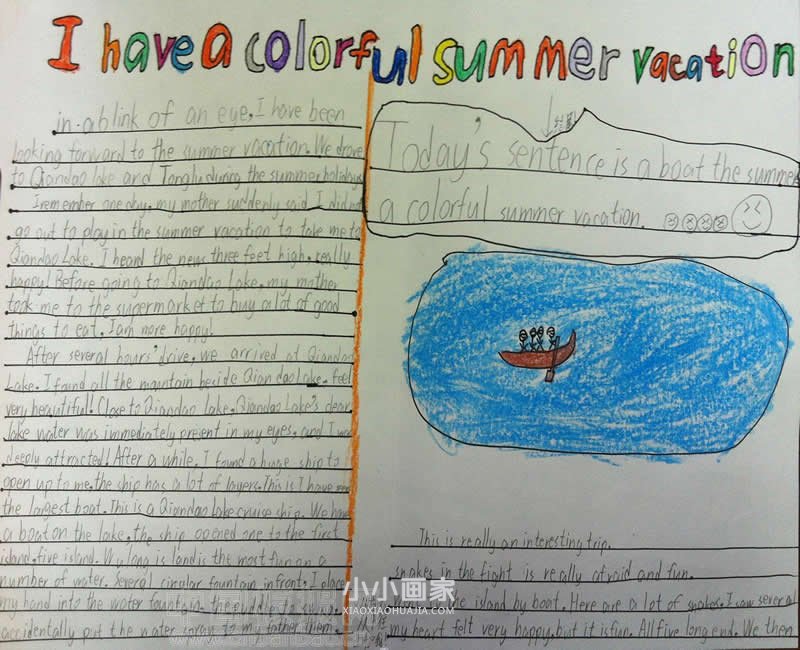 I have a colorful summer vacation
in a blink of an eye, I have been
looking forward to the summer vacation. We drove
to Qiandao lake and Tonglu during the summer holidays
I remember one day, my mother suddenly said I did not
go out to play in the summer vacation to take me to
Qiandao Lake. I heard the news three feet high, really
happy! Before going to Qiandao Lake, my mother
took me to the supermarket to buy a lot of good
things to eat. I am more happy!
After several hours' drive, we arrived at Qiandao
Lake. I found all the mountain beside Qiandao lake, feel
very beautiful! Close to Qiandao Lake, Qiandao Lake's clear
lake water was immediately present in my eyes, and I was
deeply attracted! After a while, I found a huge ship to
open up to me, the ship has a lot of layers. This is I have seen
the largest boat. This is a Qiandao Lake cruise ship. We have
a boat on the lake, the ship opened one to the first
island, five island. is land is the most fun on a
number of water. Several circular fountain in front, I place
my hand into the water in the
accidentally put the water spray to my father them.
Today's sentence is a boat the summer
a colorful summer vacation.
This is really an interesting trip.
snakes in the fight is really afraid and fun.
island by boat. Here are a lot of snakes. I saw several
my heart felt very happy, but it is fun. All five long end. We then
小小画家
XIAOXIAOHUAJIA.COM